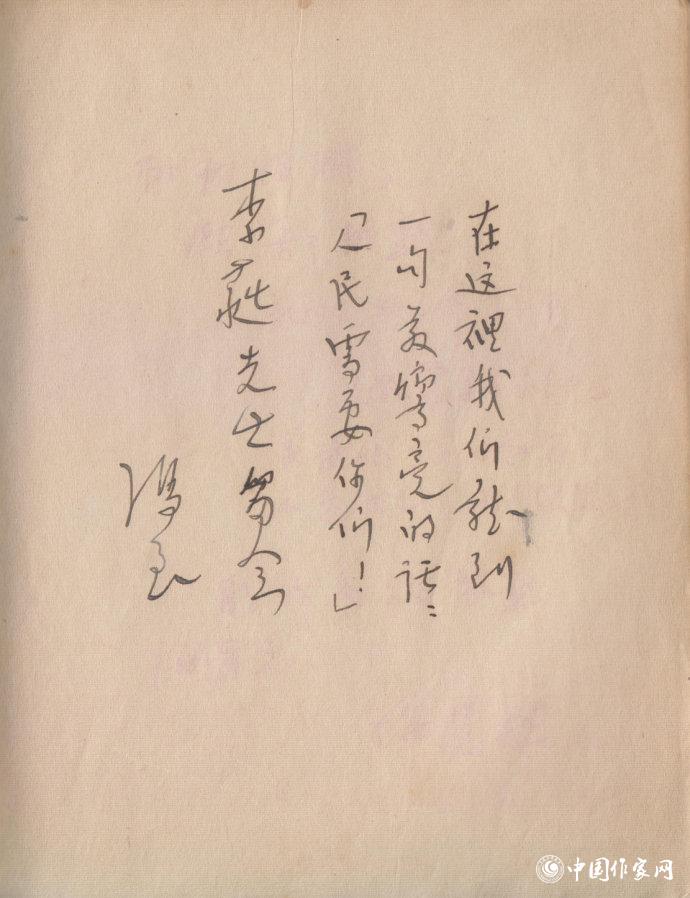 在这裡我们聽到
一句最響亮的話：
「人民需要你们！」
李蕤先生留念
馮至
中国作家网